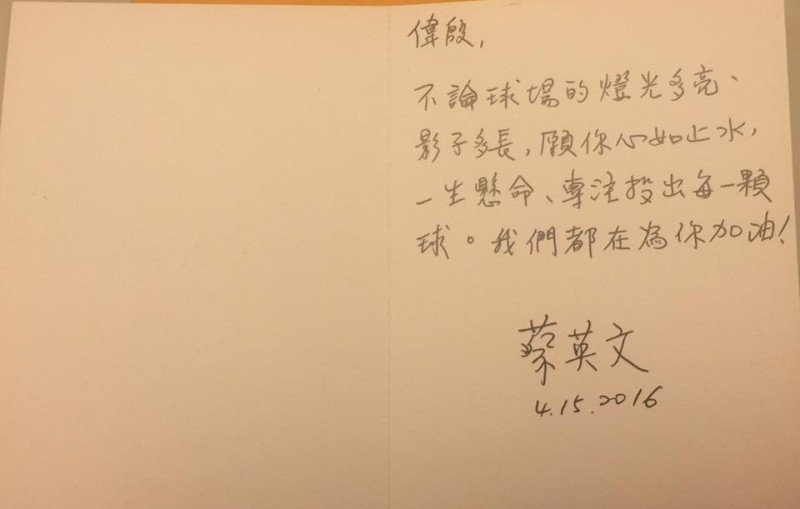 偉殷,
不論球場的燈光多亮、
影子多長,願你心如止水,
一生懸命、專注投出每一顆
球。我們都在為你加油!
蔡英文
4.15.2016